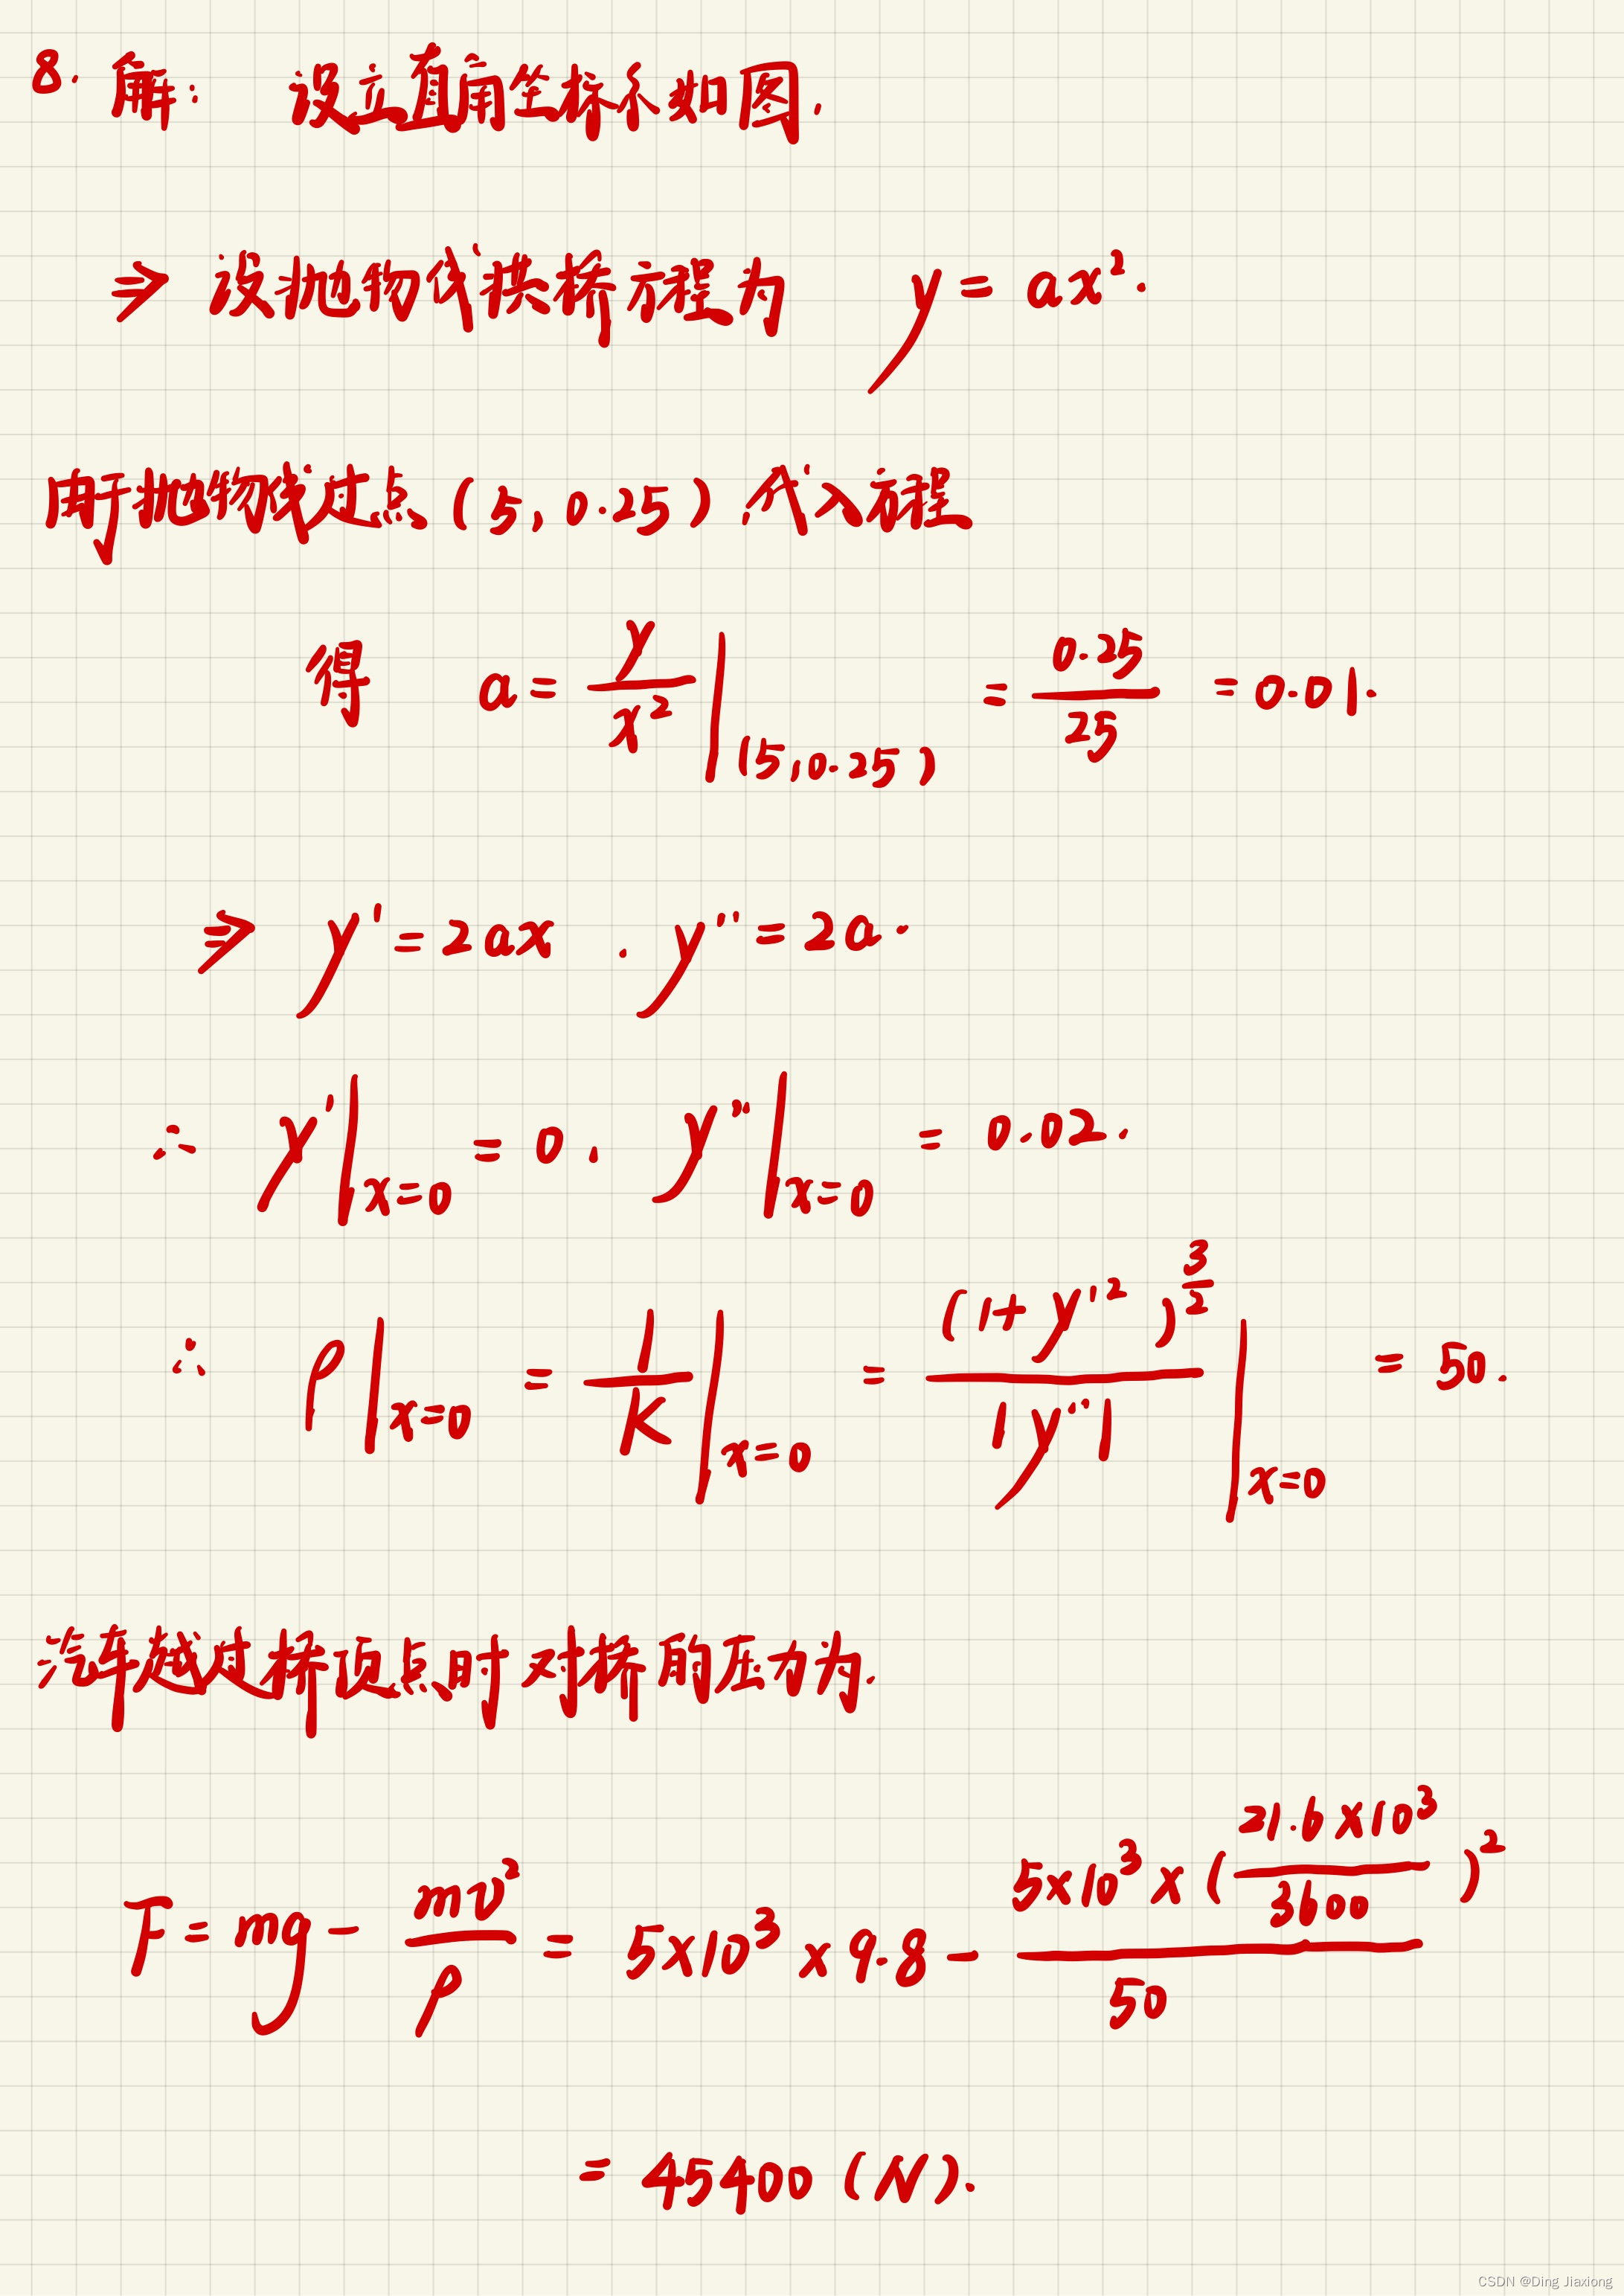 8. 解: 设立直角坐标系如图.
⇒ 设抛物线拱桥方程为 y = ax².
由于抛物线过点 (5, 0.25). 代入方程
得 a = y/x² |(5,0.25) = 0.25/25 = 0.01.
⇒ y' = 2ax . y'' = 2a.
∴ y'|x=0 = 0. y''|x=0 = 0.02.
∴ ρ|x=0 = 1/K |x=0 = (1+y'²)^(3/2)/|y''| |x=0 = 50.
汽车越过桥顶点时对桥的压力为.
F = mg - mv²/ρ = 5×10³×9.8 - 5×10³×(21.6×10³/3600)²/50
= 45400 (N).
CSDN @Ding Jiaxiong